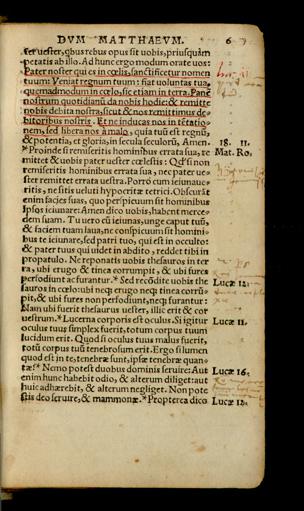 DVM MATTHAEVM. 6
ter uester, qbus rebus opus sit uobis, priusquàm
petatis ab illo. Ad hunc ergo modum orate uos:
Pater noster qui es in cœlis, sanctificetur nomen
tuum: Veniat regnum tuum: fiat uoluntas tua,
quemadmodum in cœlo, sic etiam in terra. Panē
nostrum quotidianū da nobis hodie: & remitte
nobis debita nostra, sicut & nos remittimus de-
bitoribus nostris. Et ne inducas nos in tētatio-
nem, sed libera nos à malo, quia tuū est regnū,
& potentia, et gloria, in secula seculorū, Amen. 18. 11.
* Proinde si remiseritis hominibus errata sua, re Mat. Ro.
mittet & uobis pater uester cœlestis: Qđ si non
remiseritis hominibus errata sua, nec pater ue-
ster remittet errata uestra. Porrò cum ieiunaue-
ritis, ne sitis ueluti hypocritæ tetrici. Obscurāt
enim facies suas, quo perspicuum sit hominibus
ipsos ieiunare: Amen dico uobis, habent merce-
dem suam. Tu uero cū ieiunas, unge caput tuū,
& faciem tuam laua, ne conspicuum sit homini-
bus te ieiunare, sed patri tuo, qui est in occulto:
& pater tuus qui uidet in abdito, reddet tibi in
propatulo. Ne reponatis uobis thesauros in ter
ra, ubi erugo & tinea corrumpit, & ubi fures
perfodiunt ac furantur.* Sed recōdite uobis the Lucæ 12.
sauros in cœlo: ubi neq; erugo neq; tinea corrū-
pit, & ubi fures non perfodiunt, neq; furantur:
Nam ubi fuerit thesaurus uester, illic erit & cor
uestrum.* Lucerna corporis est oculus. Si igitur Lucæ 11.
oculus tuus simplex fuerit, totum corpus tuum
lucidum erit. Quod si oculus tuus malus fuerit,
totū corpus tuū tenebrosum erit. Ergo si lumen
quod est in te, tenebræ sunt, ipsæ tenebræ quan-
tæ?* Nemo potest duobus dominis seruire: Aut Lucæ 16.
enim hunc habebit odio, & alterum diliget: aut
huic adhærebit, & alterum negliget. Non pote
stis deo seruire, & mammonæ.* Propterea dico Lucæ 12.